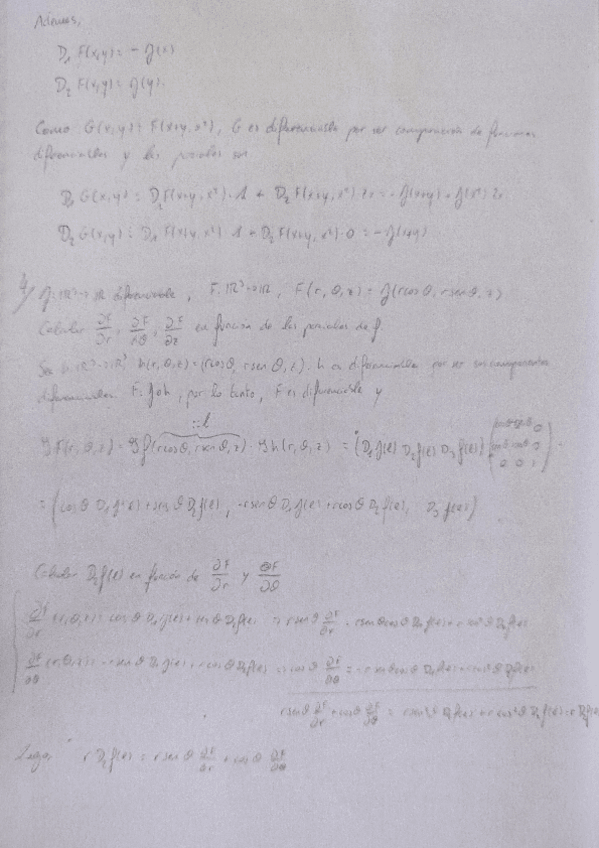 Además,
D₁ F(x,y) = - f(x)
D₂ F(x,y) = f(y).
Como G(x,y) = F(x+y, x²), G es diferenciable por ser composición de funciones
diferenciables y las parciales son
D₁ G(x,y) = D₁ F(x+y, x²)·1 + D₂ F(x+y, x²)·2x = - f(x+y) + f(x²) 2x
D₂ G(x,y) = D₁ F(x+y, x²)·1 + D₂ F(x+y, x²)·0 = - f(x+y)
4/ f: ℝ³→ℝ diferenciable, F: ℝ³→ℝ, F(r, θ, z) = f(r cosθ, r senθ, z)
Calcular ∂F/∂r, ∂F/∂θ, ∂F/∂z en función de las parciales de f.
Sea h: ℝ³→ℝ³ h(r, θ, z) = (r cosθ, r senθ, z). h es diferenciable por ser sus componentes
diferenciables. F = f∘h, por lo tanto, F es diferenciable y
:= l
JF(r, θ, z) = Jf(r cosθ, r senθ, z) · Jh(r, θ, z) = (D₁f(l) D₂f(l) D₃f(l))
= (cosθ D₁f(l) + senθ D₂f(l), -r senθ D₁f(l) + r cosθ D₂f(l), D₃f(l))
Calcular D₂f(l) en función de ∂F/∂r y ∂F/∂θ
∂F/∂r (r, θ, z) = cosθ D₁f(l) + senθ D₂f(l) → r senθ ∂F/∂r = r senθ cosθ D₁f(l) + r sen²θ D₂f(l)
∂F/∂θ (r, θ, z) = -r senθ D₁f(l) + r cosθ D₂f(l) → cosθ ∂F/∂θ = -r senθ cosθ D₁f(l) + r cos²θ D₂f(l)
r senθ ∂F/∂r + cosθ ∂F/∂θ = r sen²θ D₂f(l) + r cos²θ D₂f(l) = r D₂f(l)
Luego r D₂f(l) = r senθ ∂F/∂r + cosθ ∂F/∂θ